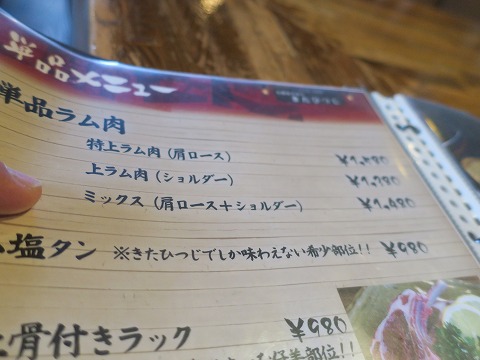 単品メニュー
単品ラム肉
特上ラム肉（肩ロース）
上ラム肉（ショルダー）
ミックス（肩ロース＋ショルダー）
塩タン ※きたひつじでしか味わえない希少部位！！ ¥980
骨付きラック ¥980